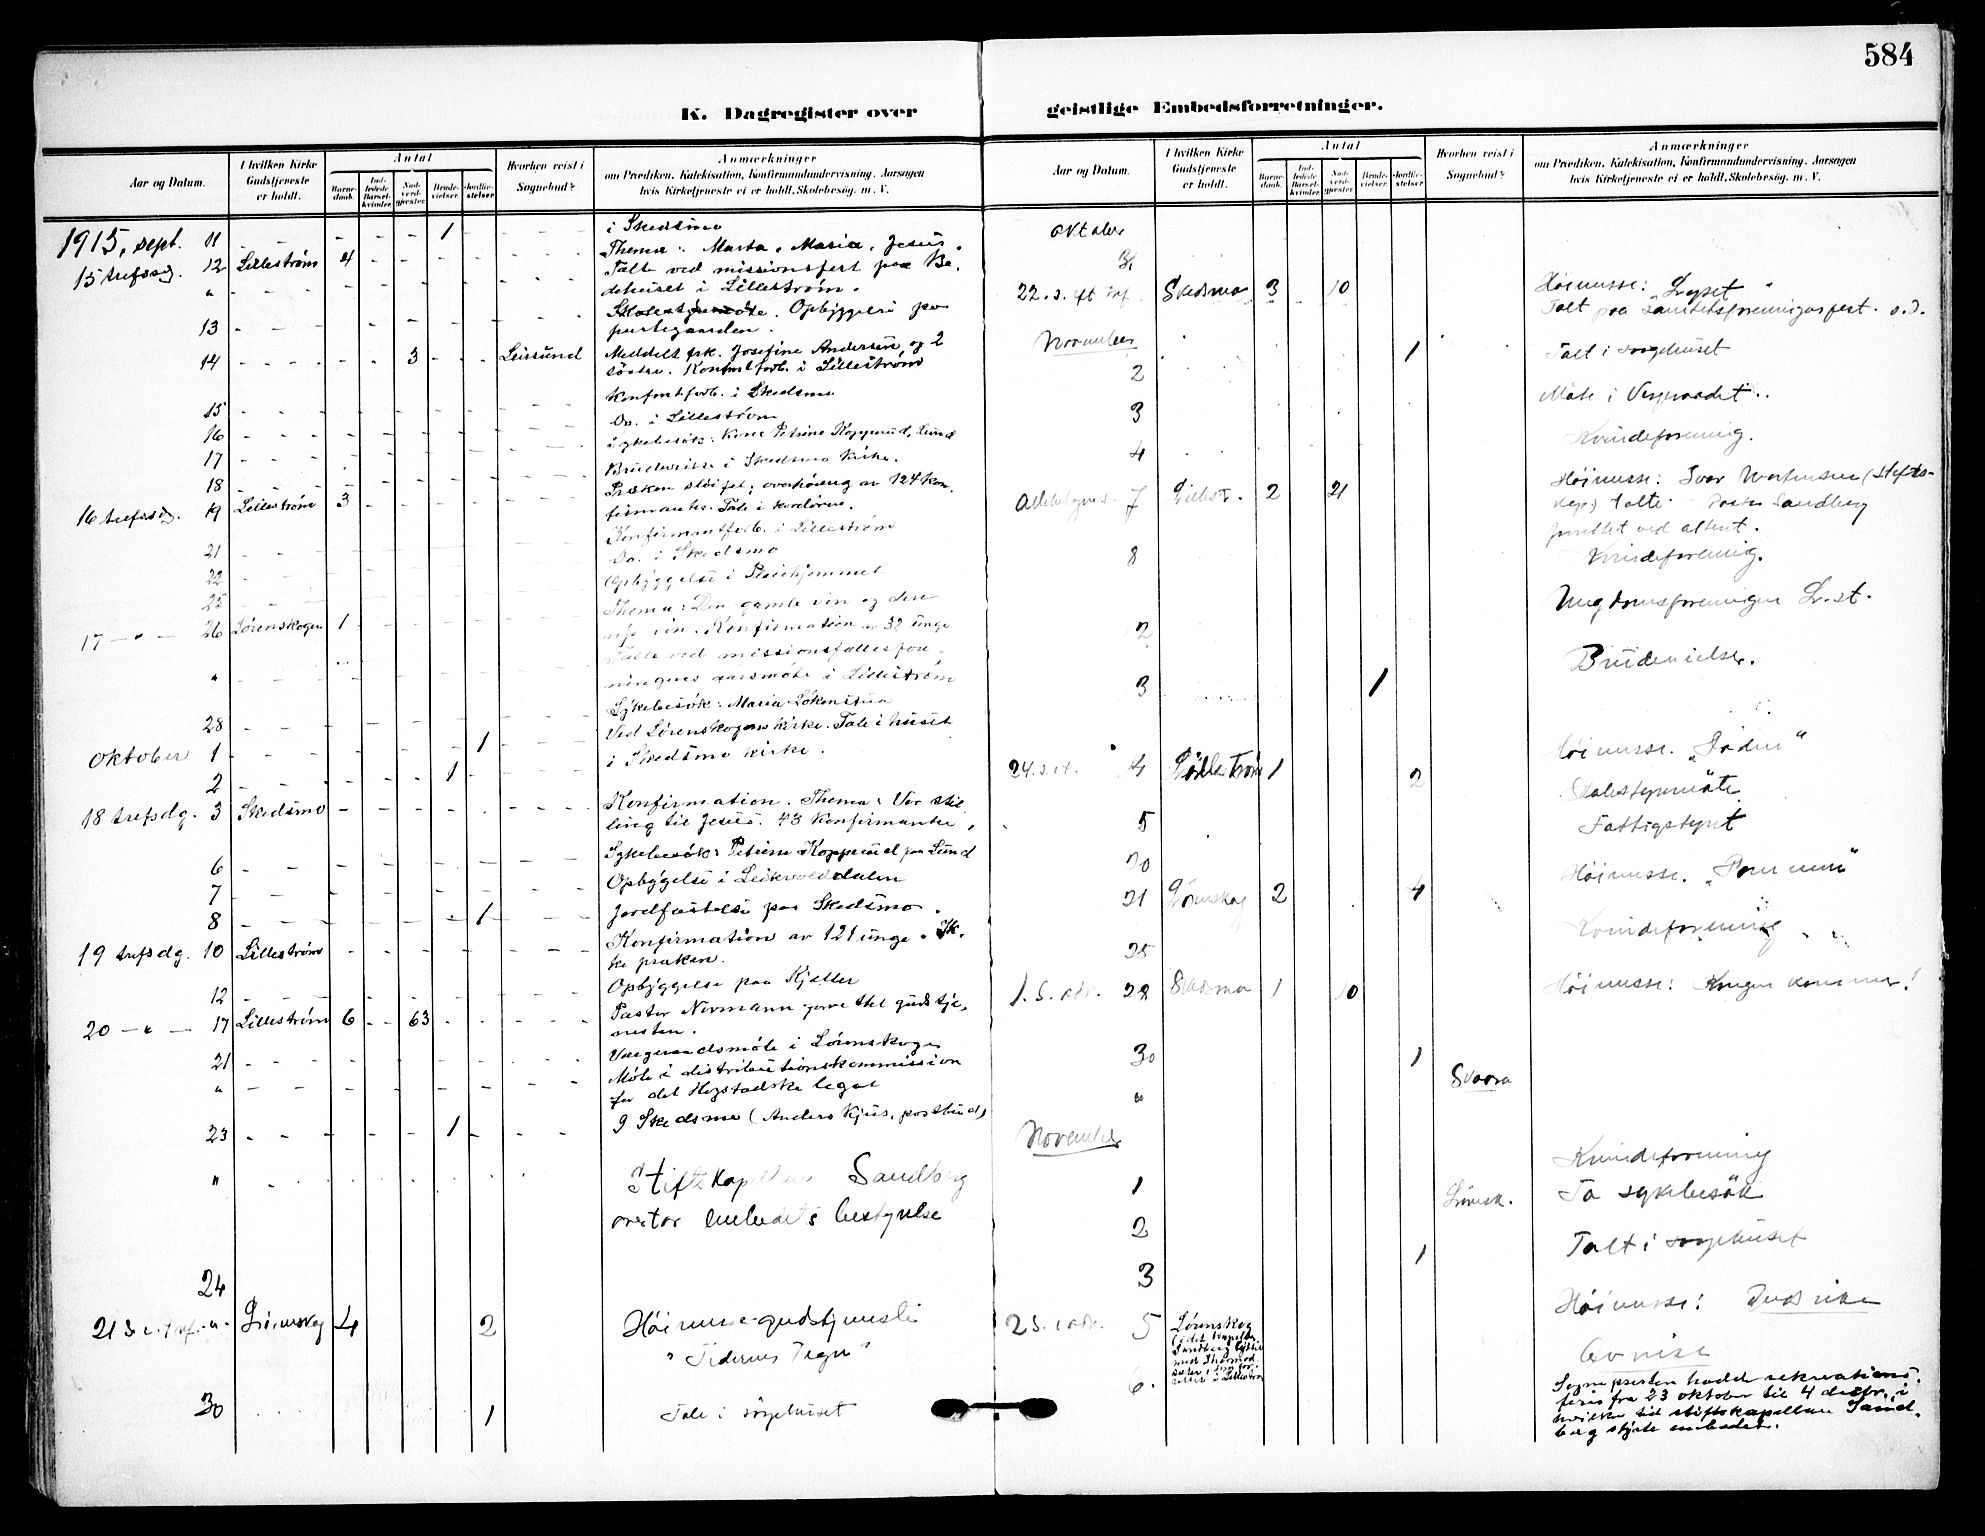 584
K. Dagregister over geistlige Embedsforretninger.
Aar og Datum. I hvilken Kirke Gudstjeneste er holdt. Antal Barnedaab. Indledede Barselkvinder. Nadverdgjester. Brudevielser. Jordfæstelser. Hvorhen reist i Sognebud? Anmærkninger om Prædiken, Katekisation, Konfirmandundervisning, Aarsagen hvis Kirketjeneste ei er holdt, Skolebesøg, m. V.
1915, sept. 11 - - - - - 1 - - - i Skedsmo
15 trefsdg. 12 Lillestrøm 4 - - - - Thema: Marta, Maria, Jesus.
" - - - - - Tale ved missionsfest paa Be-
dehuset i Lillestrøm.
13 - - - - - Skolestyremøte. Opbyggelse paa
14 - - - - 3 - - Leirsund Meddelt frk. Josefine Andersen og 2
søstre. Konfmtforb. i Lillestrøm
15 - - - - - Konfmtforb. i Skedsmo
16 - - - - - Do. i Lillestrøm
17 - - - - - Sykebesøk: Kone Petrine Kopperud, Lund
18 - - - - - Brudevielse i Skedsmo kirke.
16 trefsdg. 19 Lillestrøm 3 - - - - Præken sløifet; overhøring av 124 kon-
firmanter. Tale i kordøren.
21 - - - Konfirmantforb. i Lillestrøm
22 - - - Do. i Skedsmo
25 - - - Opbyggelse i Pleiehjemmet
17 - " - 26 Lørenskogen 1 - - - - Thema: Den gamle vin og den
nye vin. Konfirmation av 32 unge
" - - - Tale ved missionsfællesfore-
ningens aarsmøte i Lillestrøm
28 - - - - - Sykebesøk: Maria Løkenstua
oktober 1 - - - - - 1 - - - Ved Lørenskogens kirke. Tale i huset
2 - - - - 1 - - - - i Skedsmo kirke.
18 trefsdg. 3 Skedsmo - - - - - Konfirmation. Thema: Vor stil-
ling til Jesus. 43 konfirmanter.
6 - - - - - Sykebesøk: Petrine Kopperud paa Lund
7 - - - - - Opbyggelse i
8 - - - - - 1 - - - Jordfæstelse paa Skedsmo.
19 trefsdg. 10 Lillestrøm - - - - - Konfirmation av 121 unge. Ik-
ke præken.
12 - - - - - Opbyggelse paa Kjeller
20 - " - 17 Lillestrøm 6 - - 63 - - - - Pastor Normann forrettet gudstje-
nesten.
21 - - - - - Vergeraadsmøte i Lørenskogen
" - - - - - Møte i distributionskommission
for det Hogstadske legat
23 - - - - 1 - - - - I Skedsmo (Anders Kjus, postbud)
" Stiftskapellan Sandberg
overtar embedets bestyrelse
24
21 S. e. tref. " Lørenskog 4 2 Høimesse-gudstjeneste
"Tidernes Tegn"
30 1 Tale i sørgehuset
Aar og Datum. I hvilken Kirke Gudstjeneste er holdt. Antal Barnedaab. Indledede Barselkvinder. Nadverdgjester. Brudevielser. Jordfæstelser. Hvorhen reist i Sognebud? Anmærkninger om Prædiken, Katekisation, Konfirmandundervisning, Aarsagen hvis Kirketjeneste ei er holdt, Skolebesøg, m. V.
oktober
22. s. eft. tref. 31 Skedsmo 3 10 Høimesse: "Lyset"
Talt paa Sanitetsforeningsfest. s. d.
November
2 1 Talt i sørgehuset
3 Møte i Vergeraadet
4 Kvindeforening.
Allehelgens. 7 Lillestr. 2 21 Høimesse: Ivar Mortensen (stifts-
kap.) talte. Pastor Sandberg
8 Kvindeforening.
Ungdomsforeningen L.st.
3 1 Brudevielser.
24. s. e. t. 14 Lillestrøm 1 2 Høimesse.
15 Skolestyremøte
20 Fattigstyret
21 Lørenskog 2 4 Høimesse.
25 Kvindeforening
1. S. adv. 28 Skedsmo 1 10 Høimesse: Kongen kommer!
30 1
" Svarra
November
1 Kvindeforening
2 Lørensk. To sykebesøk
3 1 Talt i sørgehuset
2 S. i adv. 5 Lørenskog Høimesse: Guds rike
6. Avreise
Sognepresten hadde rekreations-
ferie fra 23 oktober til 4 decbr., i
hvilken tid stiftskapellan Sand-
berg styrte embedet.